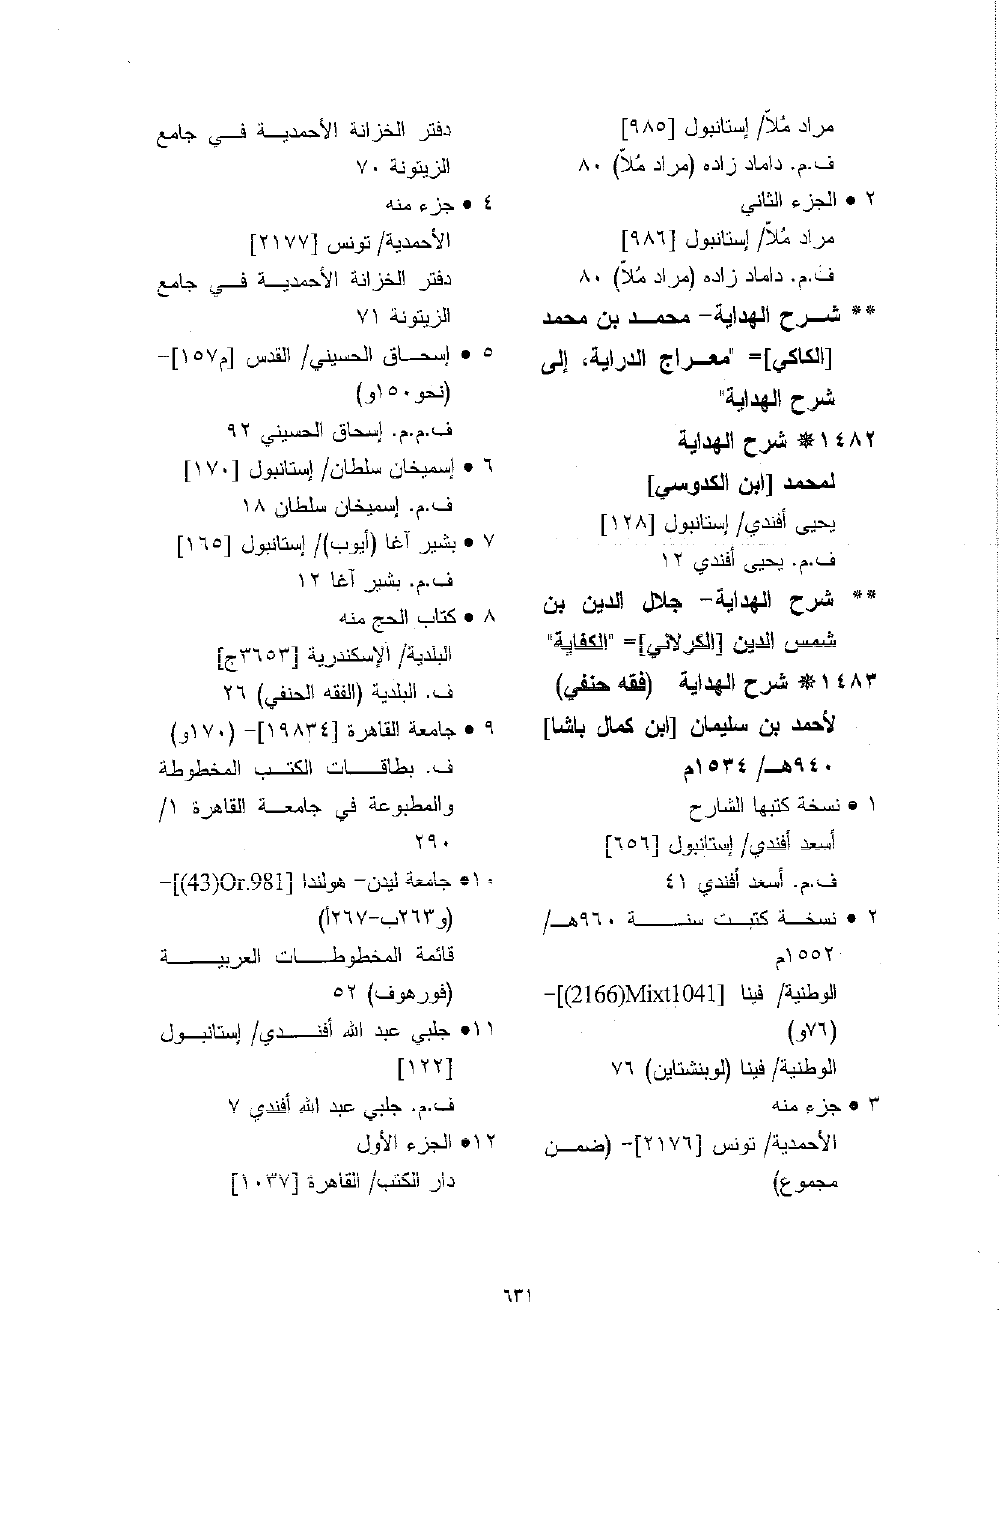 مراد مُلاّ/ إستانبول [٩٨٥]
ف.م. داماد زاده (مراد مُلاّ) ٨٠
٢ • الجزء الثاني
مراد مُلاّ/ إستانبول [٩٨٦]
ف.م. داماد زاده (مراد مُلاّ) ٨٠
** شرح الهداية- محمد بن محمد
[الكاكي]= "معراج الدراية، إلى
شرح الهداية"
١٤٨٢* شرح الهداية
لمحمد [ابن الكدوسي]
يحيى أفندي/ إستانبول [١٢٨]
ف.م. يحيى أفندي ١٢
** شرح الهداية- جلال الدين بن
شمس الدين [الكرلاني]= "الكفاية"
١٤٨٣* شرح الهداية (فقه حنفي)
لأحمد بن سليمان [ابن كمال باشا]
٩٤٠هـ/ ١٥٣٤م
١ • نسخة كتبها الشارح
أسعد أفندي/ إستانبول [٦٥٦]
ف.م. أسعد أفندي ٤١
٢ • نسخة كتبت سنة ٩٦٠هـ/
١٥٥٢م
الوطنية/ فينا [2166)Mixt1041)]-
(٧٦و)
الوطنية/ فينا (لوبنشتاين) ٧٦
٣ • جزء منه
الأحمدية/ تونس [٢١٧٦]- (ضمن
مجموع)
دفتر الخزانة الأحمدية في جامع
الزيتونة ٧٠
٤ • جزء منه
الأحمدية/ تونس [٢١٧٧]
دفتر الخزانة الأحمدية في جامع
الزيتونة ٧١
٥ • إسحاق الحسيني/ القدس [م١٥٧]-
(نحو١٥٠و)
ف.م.م. إسحاق الحسيني ٩٢
٦ • إسميخان سلطان/ إستانبول [١٧٠]
ف.م. إسميخان سلطان ١٨
٧ • بشير آغا (أيوب)/ إستانبول [١٦٥]
ف.م. بشير آغا ١٢
٨ • كتاب الحج منه
البلدية/ الإسكندرية [٣٦٥٣ج]
ف. البلدية (الفقه الحنفي) ٢٦
٩ • جامعة القاهرة [١٩٨٣٤]- (١٧٠و)
ف. بطاقات الكتب المخطوطة
والمطبوعة في جامعة القاهرة ١/
٢٩٠
١٠• جامعة ليدن- هولندا [43)Or.981)]-
(و٢٦٣ب-٢٦٧أ)
قائمة المخطوطات العربية
(فورهوف) ٥٢
١١• جلبي عبد الله أفندي/ إستانبول
[١٢٢]
ف.م. جلبي عبد الله أفندي ٧
١٢• الجزء الأول
دار الكتب/ القاهرة [١٠٣٧]
٦٣١